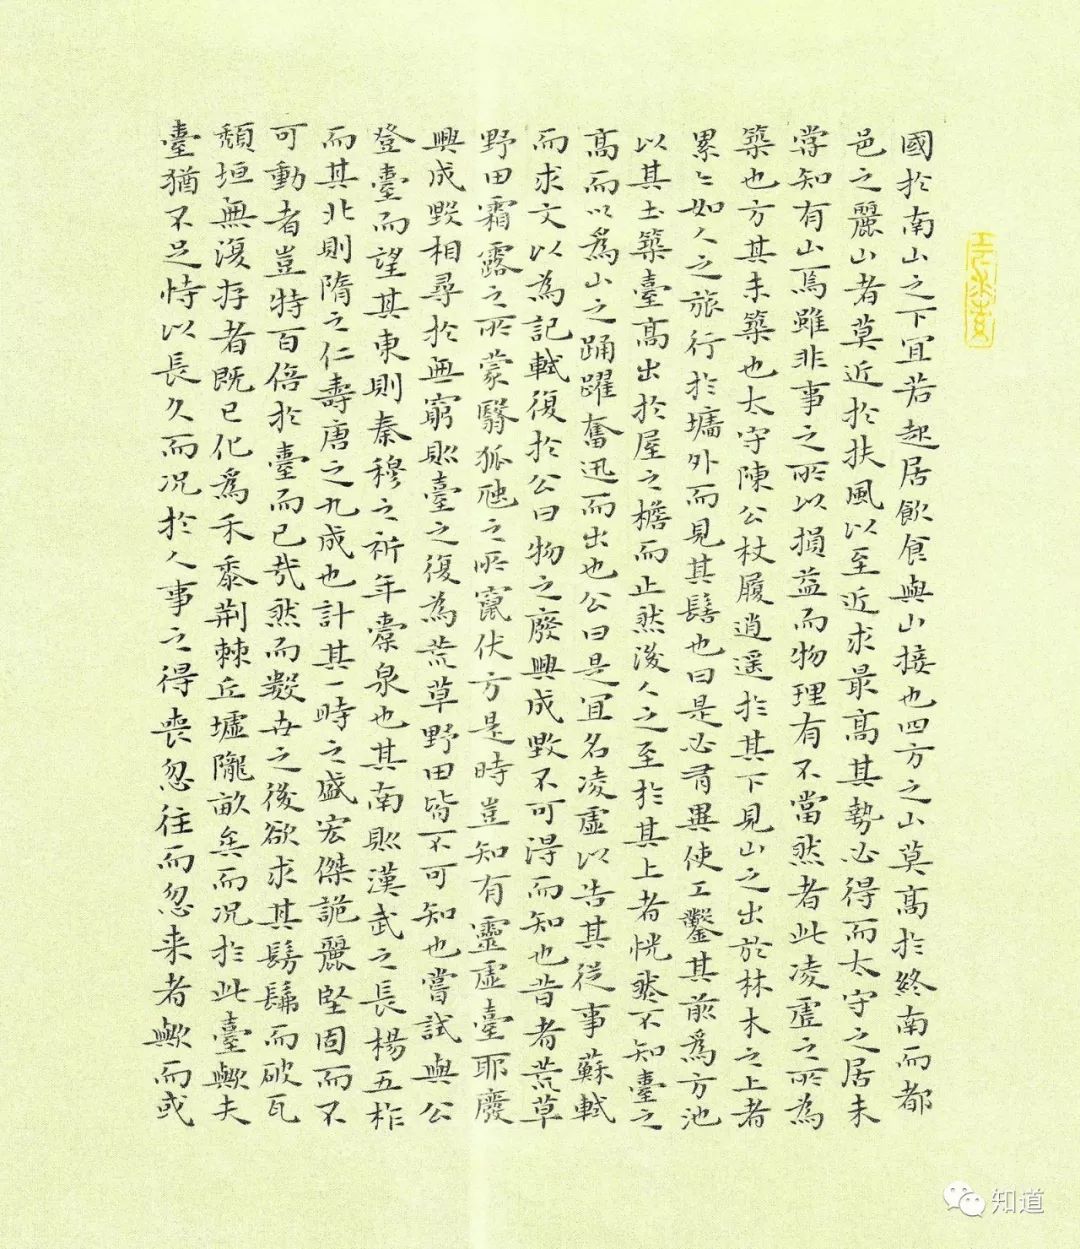 國於南山之下宜若起居飲食與山接也四方之山莫高於終南而都
邑之麗山者莫近於扶風以至近求最高其勢必得而太守之居未
嘗知有山焉雖非事之所以損益而物理有不當然者此凌虛之所為
築也方其未築也太守陳公杖履逍遙於其下見山之出於林木之上者
累々如人之旅行於墻外而見其髻也曰是必有異使工鑿其前為方池
以其土築臺高出於屋之檐而止然後人之至於其上者恍然不知臺之
高而以為山之踊躍奮迅而出也公曰是宜名凌虛以告其從事蘇軾
而求文以為記軾復於公曰物之廢興成毀不可得而知也昔者荒草
野田霜露之所蒙翳狐虺之所竄伏方是時豈知有靈虛臺耶廢
興成毀相尋於無窮則臺之復為荒草野田皆不可知也嘗試與公
登臺而望其東則秦穆之祈年橐泉也其南則漢武之長楊五柞
而其北則隋之仁壽唐之九成也計其一時之盛宏傑詭麗堅固而不
可動者豈特百倍於臺而已哉然而數世之後欲求其髣髴而破瓦
頹垣無復存者既已化為禾黍荊棘丘墟隴畝矣而況於此臺歟夫
臺猶不足恃以長久而況於人事之得喪忽往而忽来者歟而或
知道